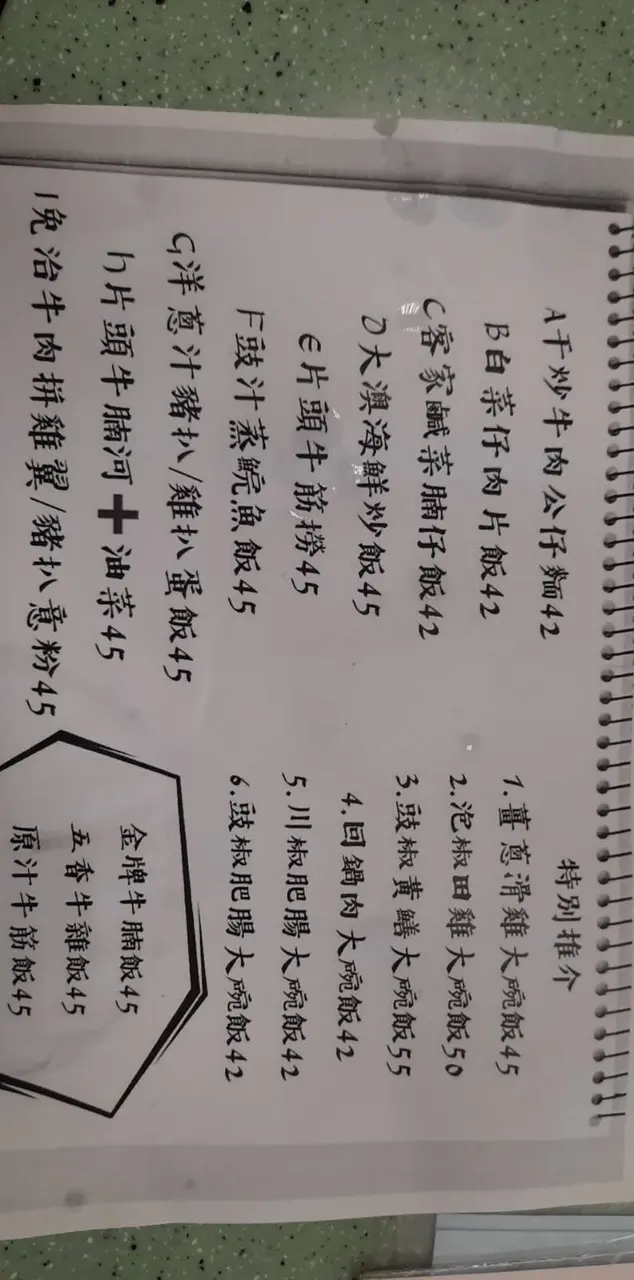 A干炒牛肉公仔麵42
B白菜仔肉片飯42
C客家鹹菜腩仔飯42
D大澳海鮮炒飯45
e片頭牛筋撈45
F豉汁蒸鯇魚飯45
G洋蔥汁豬扒/雞扒蛋飯45
h片頭牛腩河+油菜45
I免治牛肉拼雞翼/豬扒意粉45
特別推介
1.薑蔥滑雞大碗飯45
2.泡椒田雞大碗飯50
3.豉椒黄鱔大碗飯55
4.回鍋肉大碗飯42
5.川椒肥腸大碗飯42
6.豉椒肥腸大碗飯42
金牌牛腩飯45
五香牛雜飯45
原汁牛筋飯45